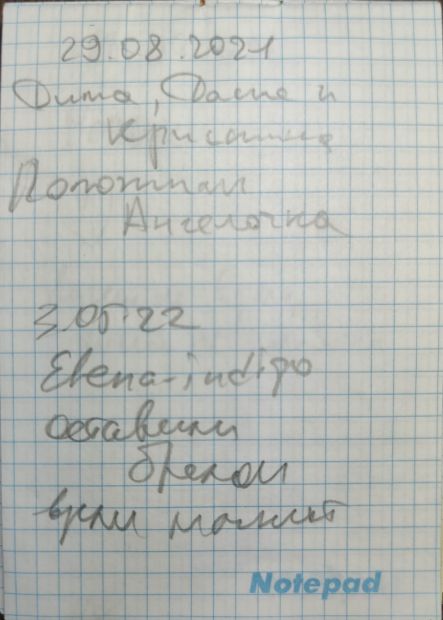 29.08.2021
Дима, Даша и
Кристина
Положили
Ангелочка
3.05.22
Elena-indigo
оставили
брелок
Notepad